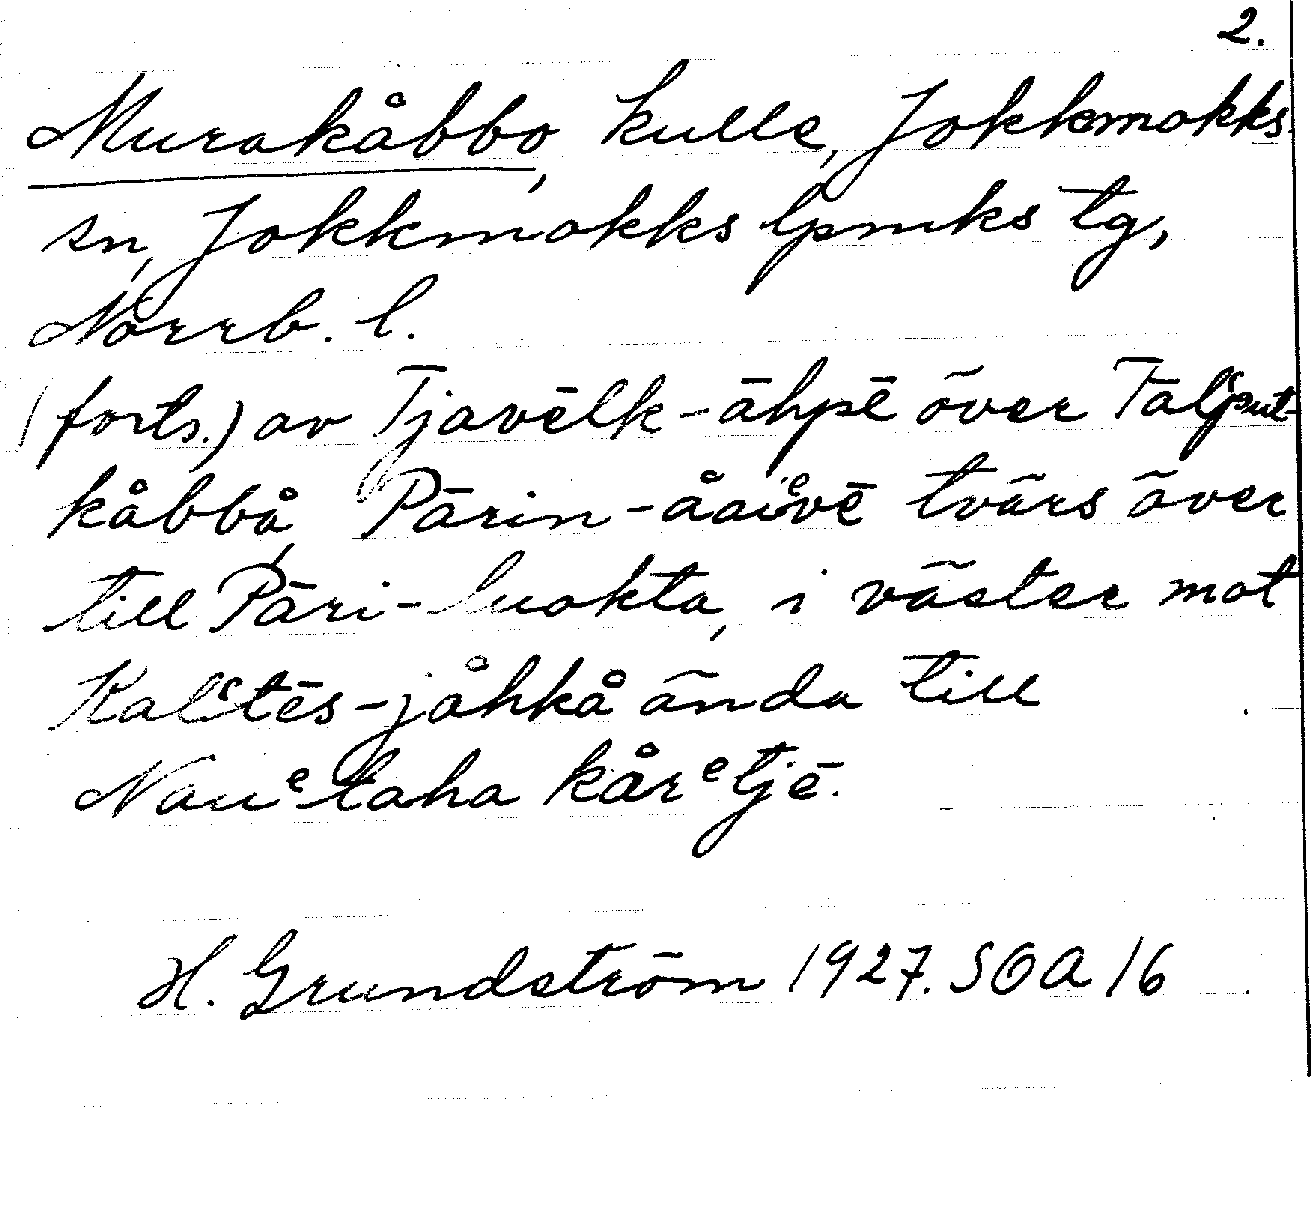 2.
Murakåbbo, kulle, Jokkmokks
sn, Jokkmokks lpmks tg,
Norrb. l.
(forts.) av Tjavēlk-āhpē över Tal͑put-
kåbbå, Pārin-åaiᵉvē tvärs över
till Pāri-luokta, i väster mot
Kal͑tēs-jåhkå ända till
Nauᵉtaha kårᵉtjē.
H. Grundström 1927. SOA 16